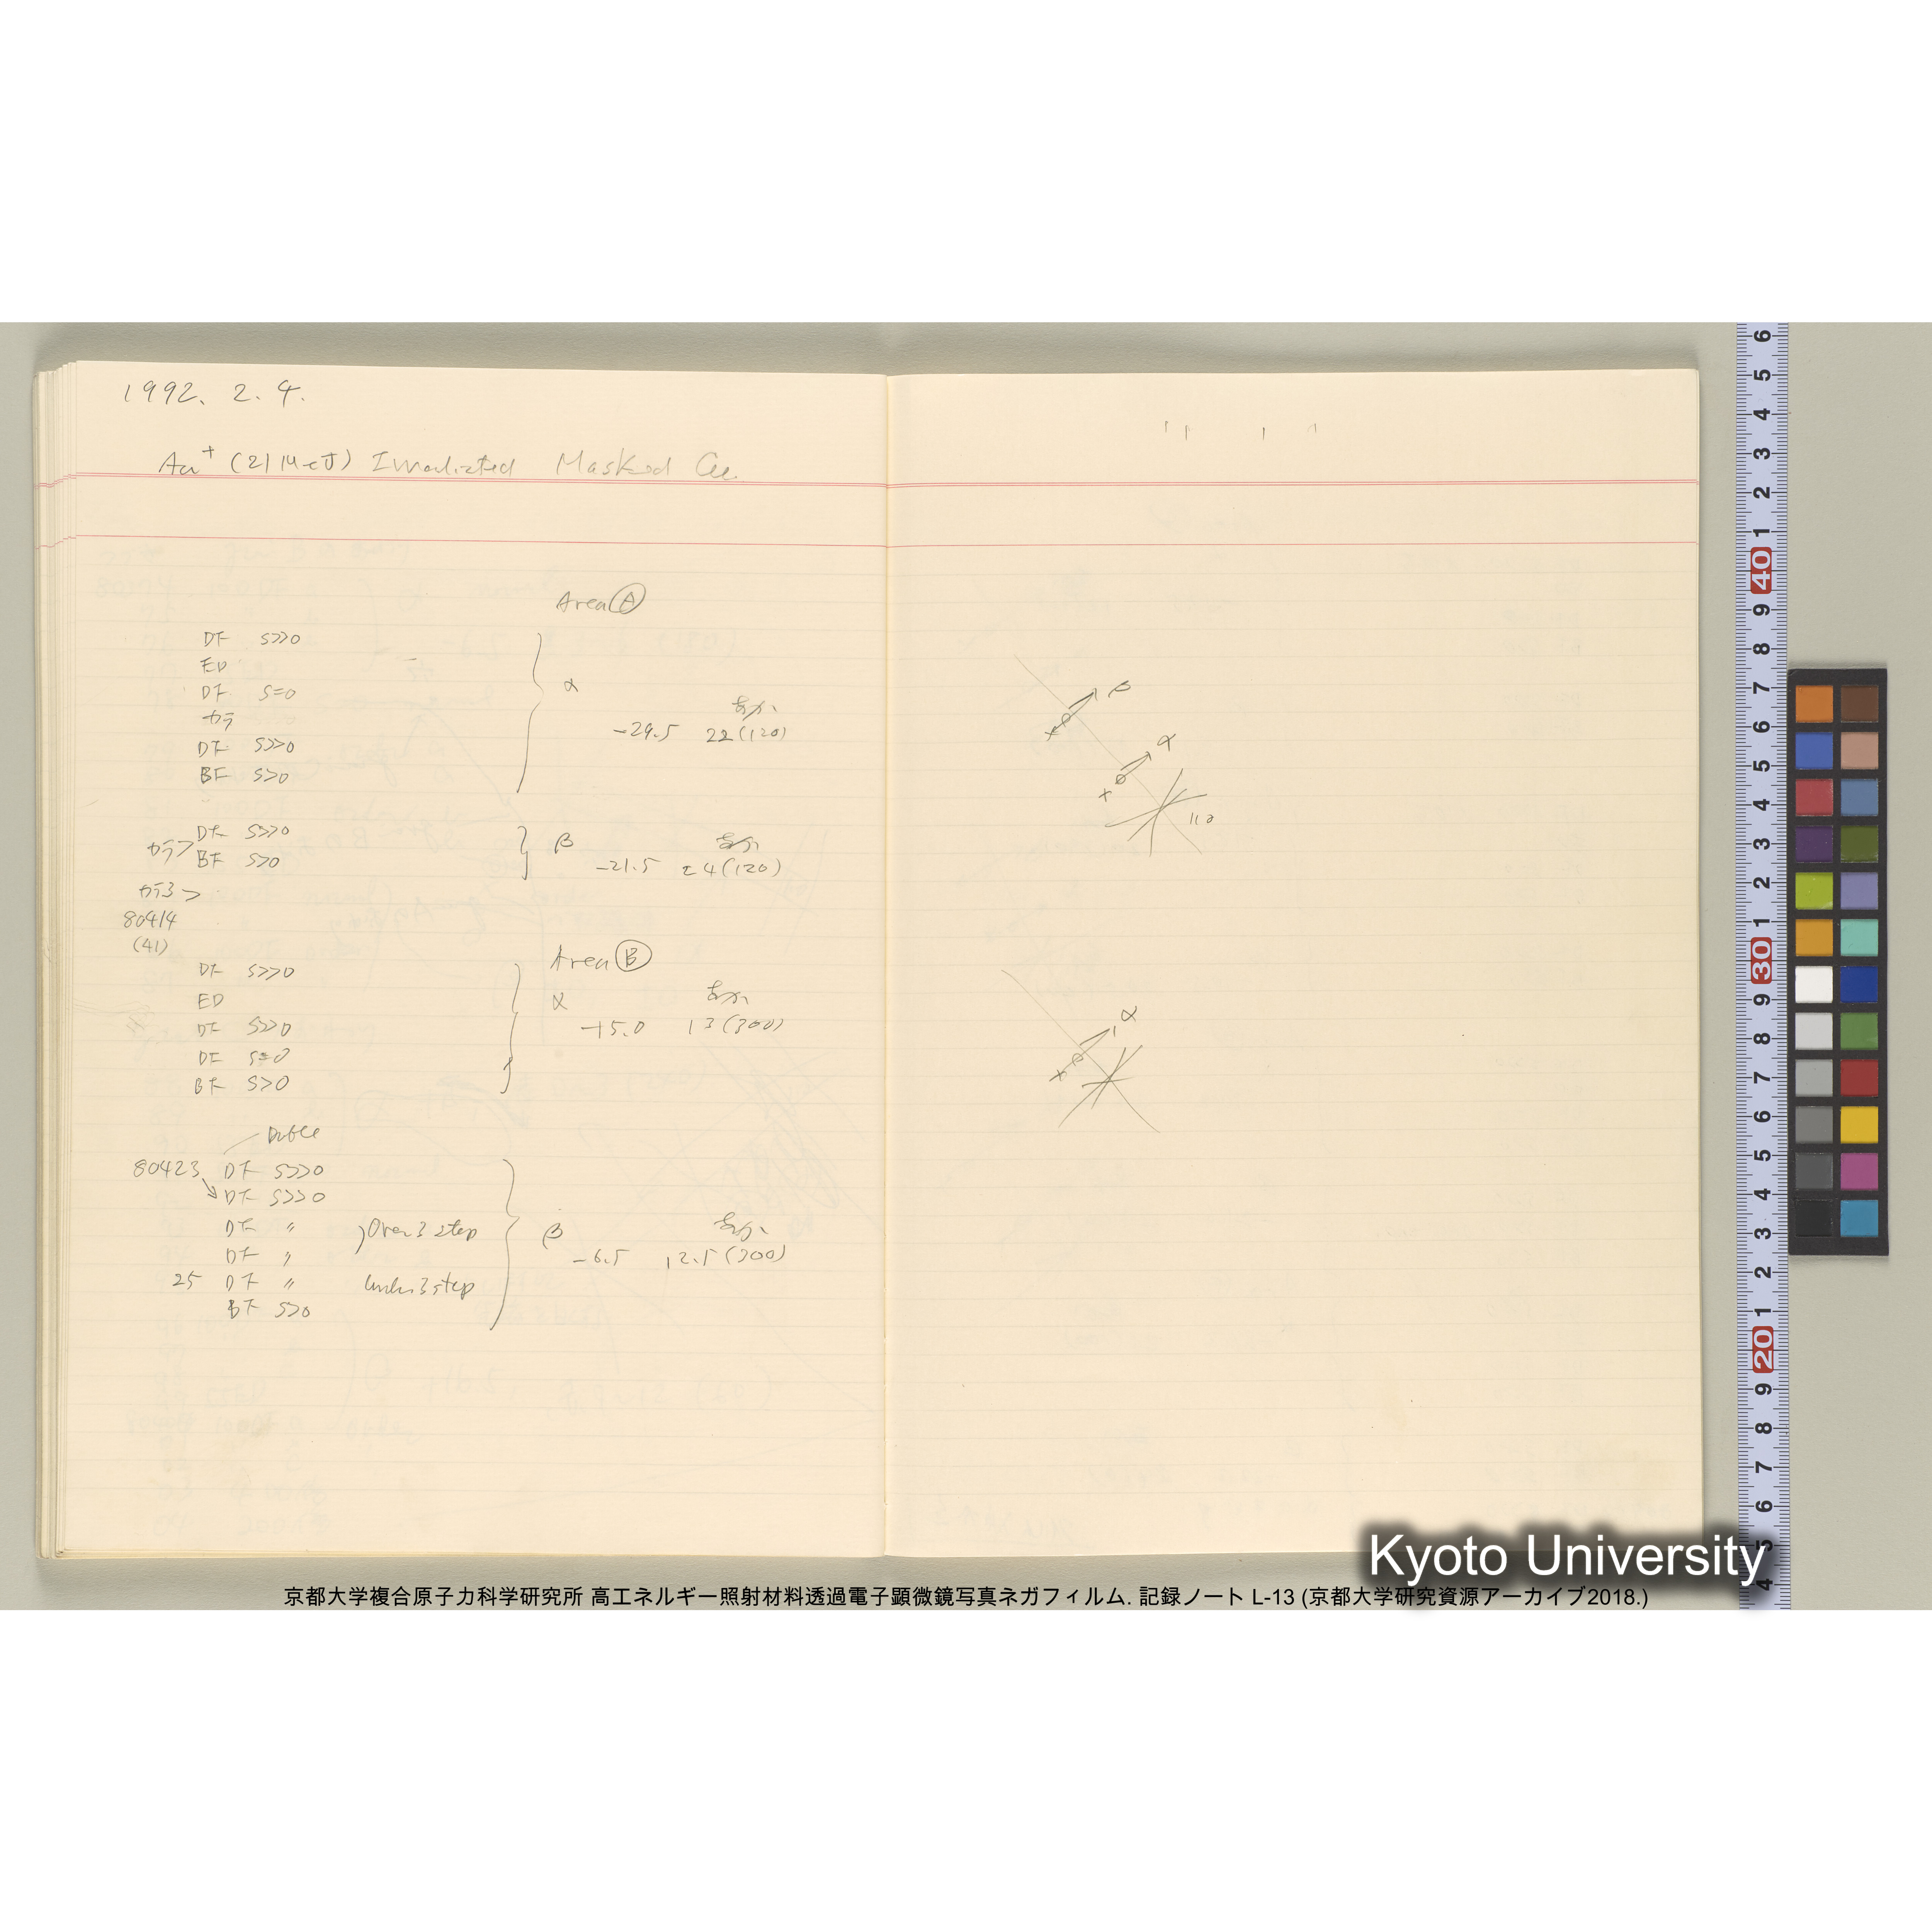 1992. 2. 4.
Au+ (21MeV) Irradiated Masked Cu
Area Ⓐ
DF S>>0
ED
DF S=0
カラ
DF S>>0
BF S>0
α
-29.5 22(120)
DF S>>0
カラ> BF S>0
β
-21.5 24(120)
カラ3>
80414
(41)
Area Ⓑ
DF S>>0
ED
DF S>>0
DF S=0
BF S>0
α
+5.0 13(300)
Duble
80423 DF S>>0
DF S>>0
DF 〃 Over 3 step
DF 〃
25 DF 〃 Under 3 step
BF S>0
β
-6.5 12.5(300)
β
α
110
α
6
5
4
3
2
1
40
9
8
7
6
5
4
3
2
1
30
9
8
7
6
5
4
3
2
1
20
9
8
7
6
5
4
Kyoto University
京都大学複合原子力科学研究所 高エネルギー照射材料透過電子顕微鏡写真ネガフィルム. 記録ノート L-13 (京都大学研究資源アーカイブ2018.)